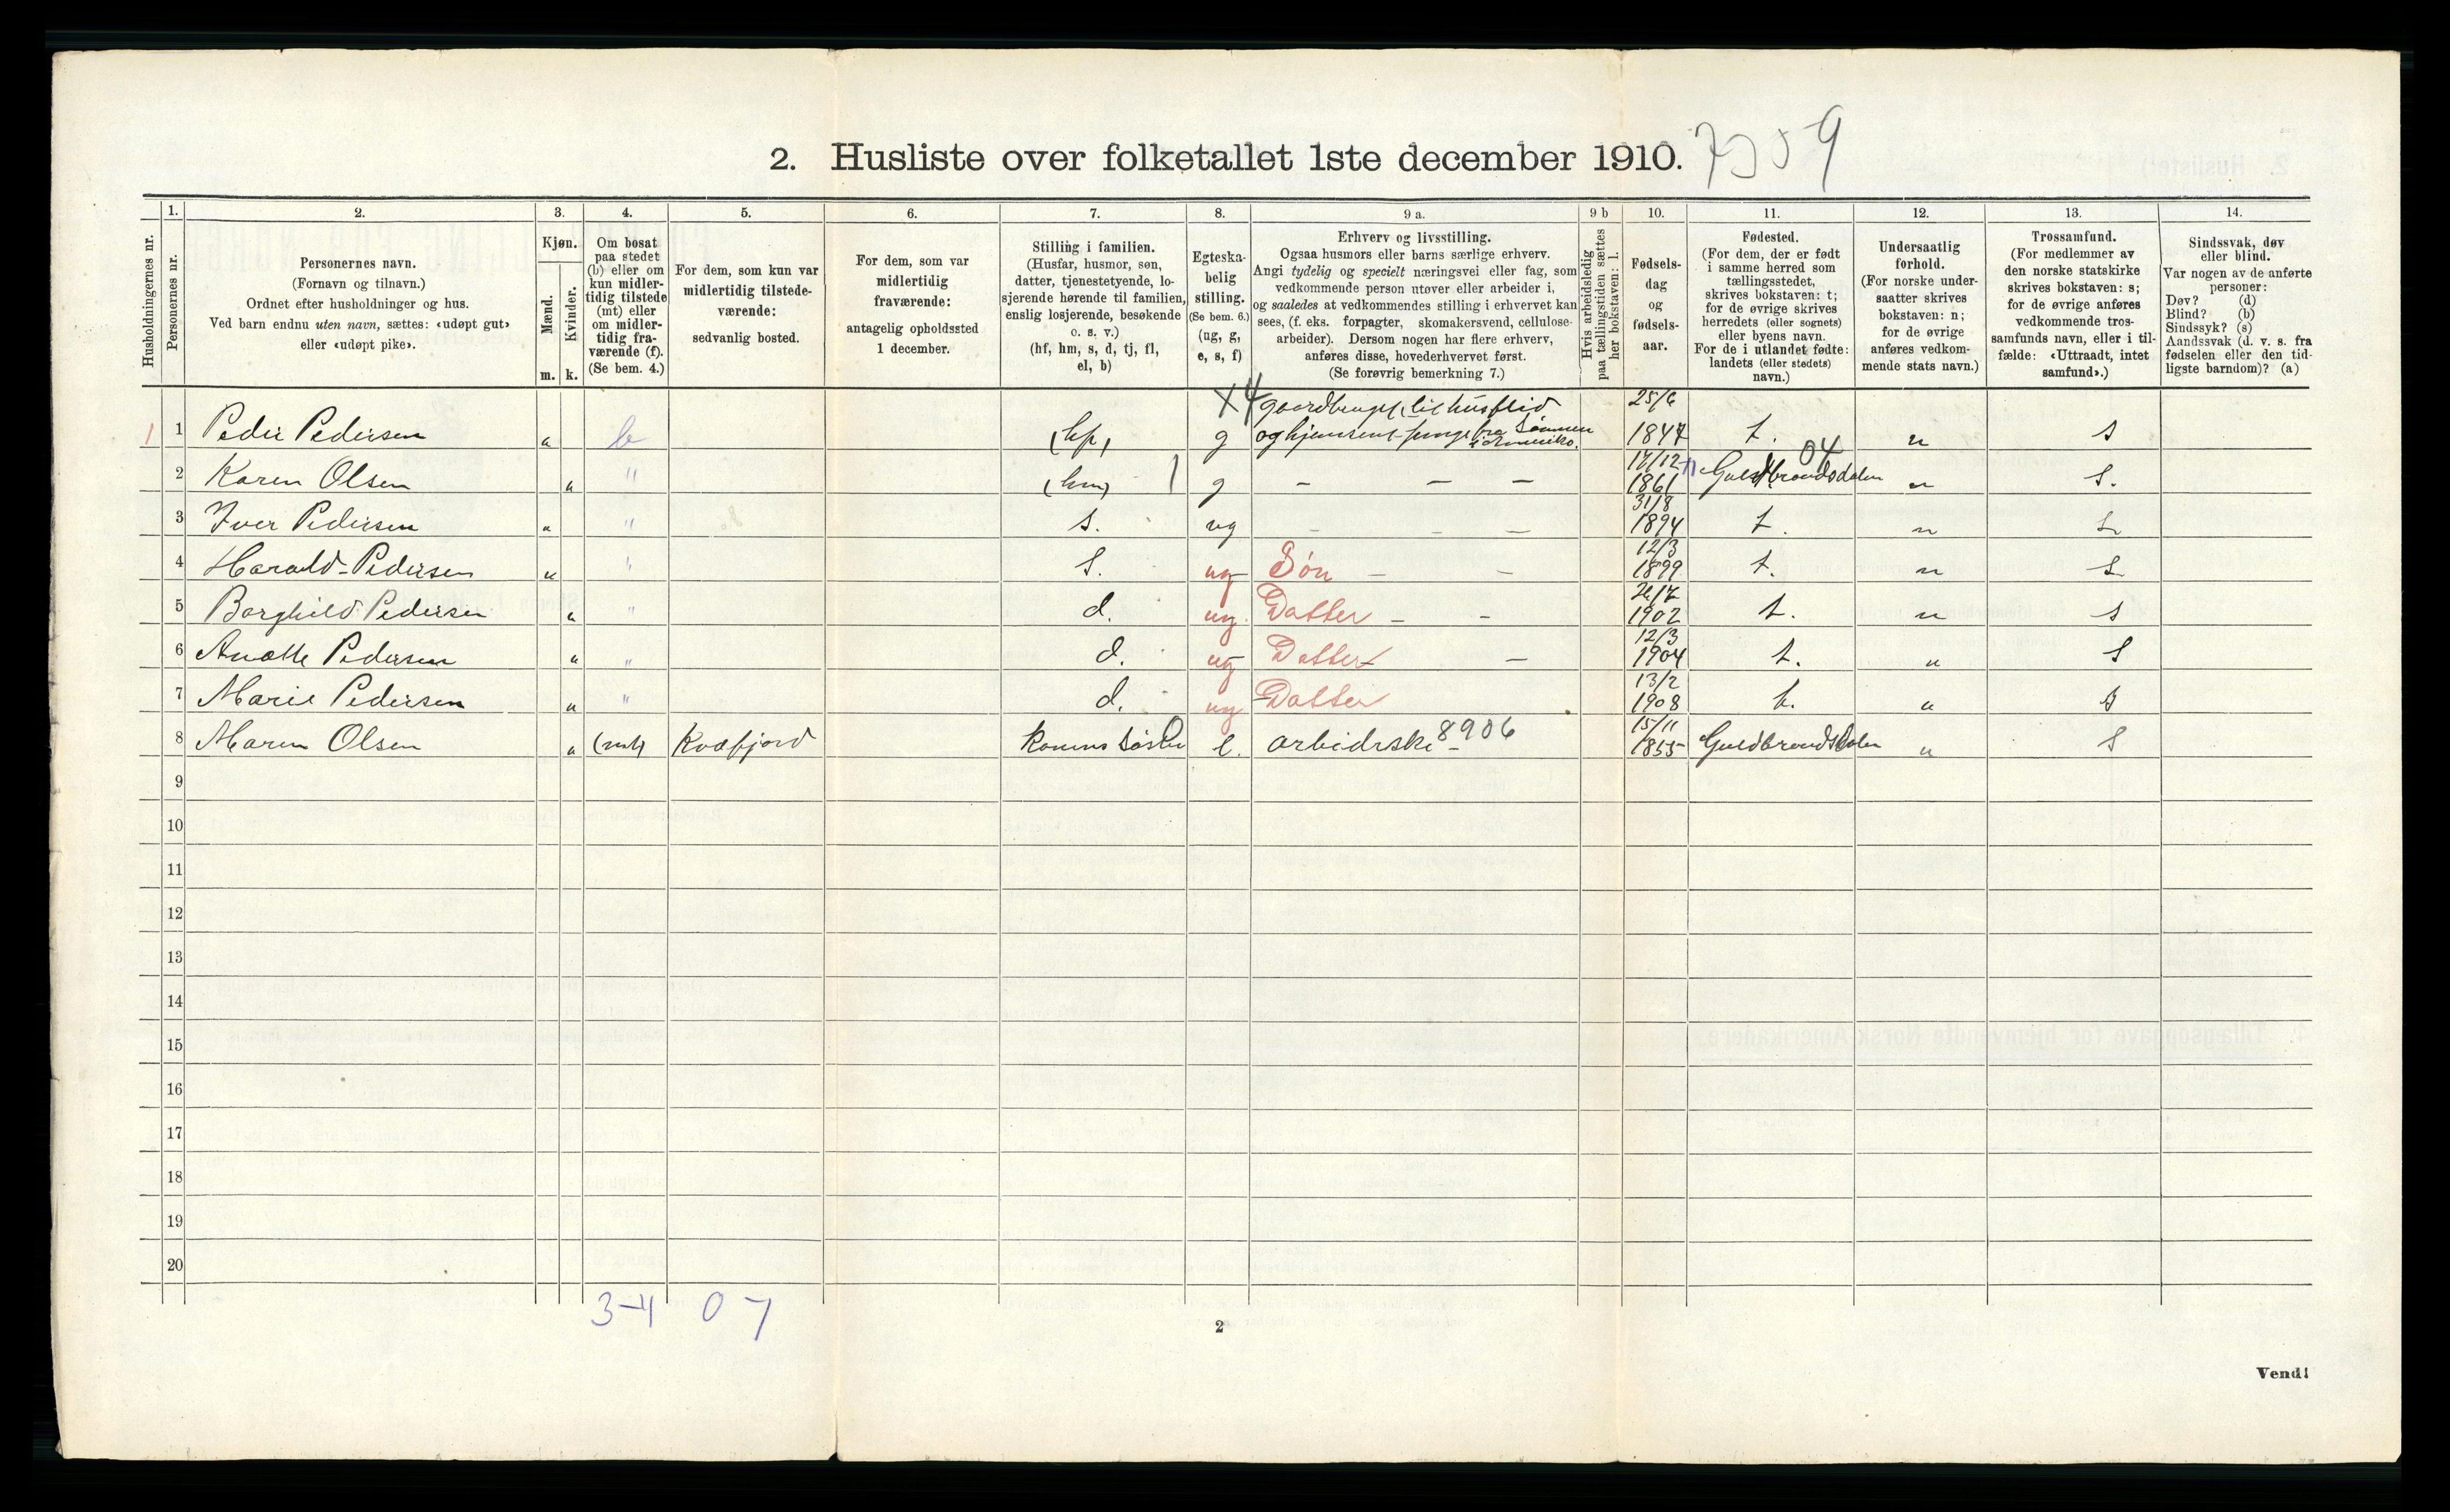 2. Husliste over folketallet 1ste december 1910.
Husholdningernes nr.
1.
Personernes nr.
2.
Personernes navn.
(Fornavn og tilnavn.)
Ordnet efter husholdninger og hus.
Ved barn endnu uten navn, sættes: «udøpt gut»
eller «udøpt pike».
3.
Kjøn.
Mænd.
Kvinder.
m. k.
4.
Om bosat
paa stedet
(b) eller om
kun midler-
tidig tilstede
(mt) eller
om midler-
tidig fra-
værende (f).
(Se bem. 4.)
5.
For dem, som kun var
midlertidig tilstede-
værende:
sedvanlig bosted.
6.
For dem, som var
midlertidig
fraværende:
antagelig opholdssted
1 december.
7.
Stilling i familien.
(Husfar, husmor, søn,
datter, tjenestetyende, lo-
sjerende hørende til familien,
enslig losjerende, besøkende
o. s. v.)
(hf, hm, s, d, tj, fl,
el, b)
8.
Egteska-
belig
stilling.
(Se bem. 6.)
(ug, g,
e, s, f)
9 a.
Erhverv og livsstilling.
Ogsaa husmors eller barns særlige erhverv.
Angi tydelig og specielt næringsvei eller fag, som
vedkommende person utøver eller arbeider i,
og saaledes at vedkommendes stilling i erhvervet kan
sees, (f. eks. forpagter, skomakersvend, cellulose-
arbeider). Dersom nogen har flere erhverv,
anføres disse, hovederhvervet først.
(Se forøvrig bemerkning 7.)
9 b
Hvis arbeidsledig
paa tællingstiden sættes
her bokstaven: l.
10.
Fødsels-
dag
og
fødsels-
aar.
11.
Fødested.
(For dem, der er født
i samme herred som
tællingsstedet,
skrives bokstaven: t;
for de øvrige skrives
herredets (eller sognets)
eller byens navn.
For de i utlandet fødte:
landets (eller stedets)
navn.)
12.
Undersaatlig
forhold.
(For norske under-
saatter skrives
bokstaven: n;
for de øvrige
anføres vedkom-
mende stats navn.)
13.
Trossamfund.
(For medlemmer av
den norske statskirke
skrives bokstaven: s;
for de øvrige anføres
vedkommende tros-
samfunds navn, eller i til-
fælde: «Uttraadt, intet
samfund».)
14.
Sindssvak, døv
eller blind.
Var nogen av de anførte
personer:
Døv? (d)
Blind? (b)
Sindssyk? (s)
Aandssvak (d. v. s. fra
fødselen eller den tid-
ligste barndom)? (a)
X4
1 1 Peder Pedersen b (hf) g 25/6 1847 t. n s
2 Karen Olsen " (hm) g — — — 17/12 1861 Guldbrandsdalen n s.
04
3 Iver Pedersen " s. ug — — — 31/8 1894 t n s
4 Harald Pedersen " s. ug Søn — — 12/3 1899 t. n s
5 Borghild Pedersen " d. ug. Datter — — 1902 t. n s
6 Anette Pedersen " d. ug Datter — 12/3 1904 t. n s
7 Marie Pedersen " d. ug Datter 13/2 1908 t. n s
8 Maren Olsen (mt) Kvæfjord Konens Søster e. arbidrske 8906 15/11 1855 Guldbrandsdalen n s
9
10
11
12
13
14
15
16
17
18
19
20
3-4 0 7
2
Vend!